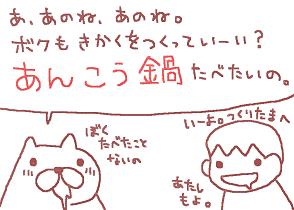 あ、あのね、あのね。
ボクもきかくをつくっていーい?
あんこう鍋たべたいの。
ぼく
たべたこと
ないの
いーよ。つくりたまへ
あたし
もよ。